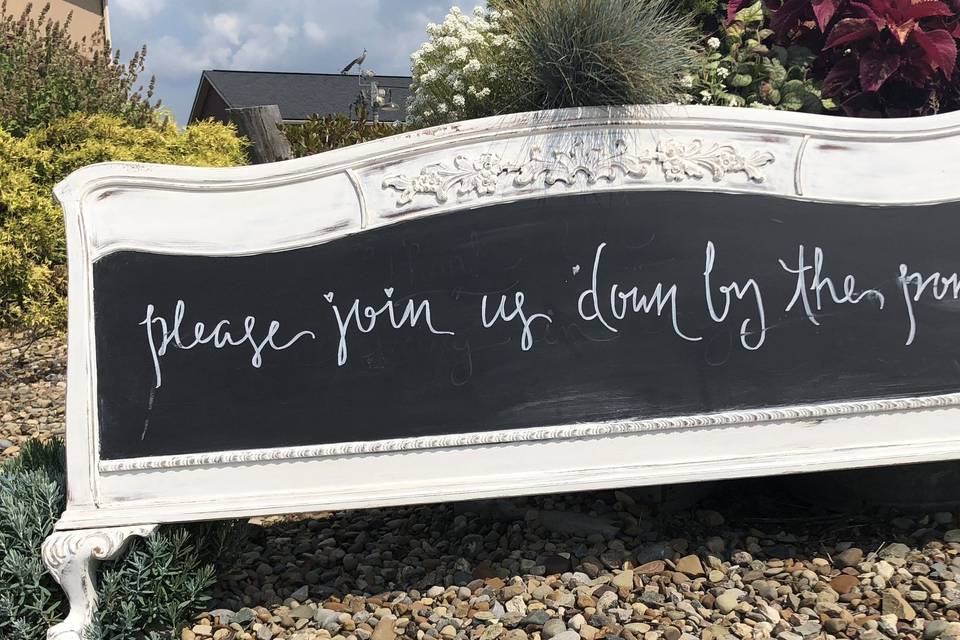 please join us down by the